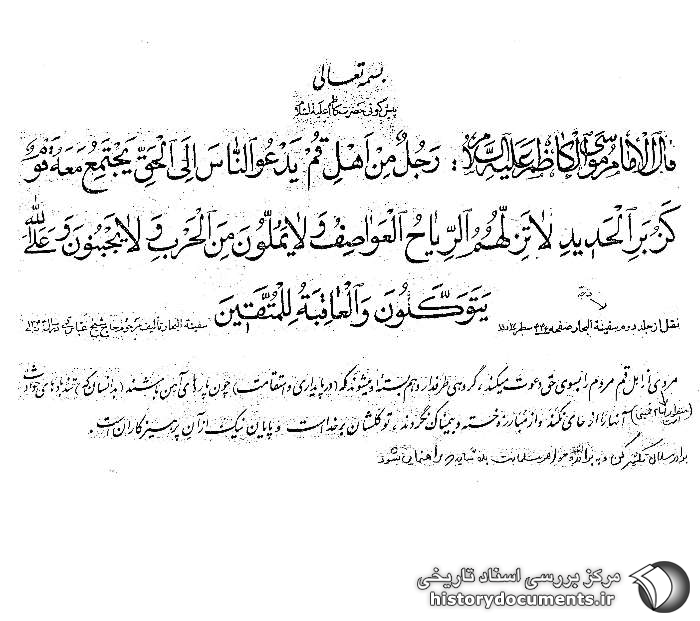 بسمه تعالی
پیش گوئی حضرت کاظم علیه السلام
قال الامام موسی الکاظم علیه السلام : رَجُلٌ مِنْ اَهْلِ قُمْ یَدْعُو النّاسَ اِلَی الْحَقِّ یَجْتَمِعُ مَعَهُ قَوْمٌ
کَزُبَرِ الْحَدیدِ لا تَزِلُّهُمُ الرِّیاحُ الْعَواصِفُ وَ لا یَمُلّونَ مِنَ الْحَرْبِ وَ لا یَجْبُنُونَ وَ عَلَی اللهِ
یَتَوَکَّلُونَ وَ الْعاقِبَةُ لِلْمُتَّقینَ
نقل از جلد دوم سفینة البحار صفحه سطر
سفینة البحار تألیف مرحوم حاج شیخ عباس
مردی از اهل قم مردم را بسوی حق دعوت میکند ، گروهی طرفدار و هم بسته او میشوند که (در پایداری و استقامت) چون پاره های آهن می باشند (بد انسان که) تند بادهای حوادث
آنها را از جای نکند و از مبارزه خسته و بیمناک نگردند ، توکلشان بر خداست و پایان نیک از آن پرهیزکاران است .
راهنمایی شوند
مرکز بررسی اسناد تاریخی
historydocuments.ir